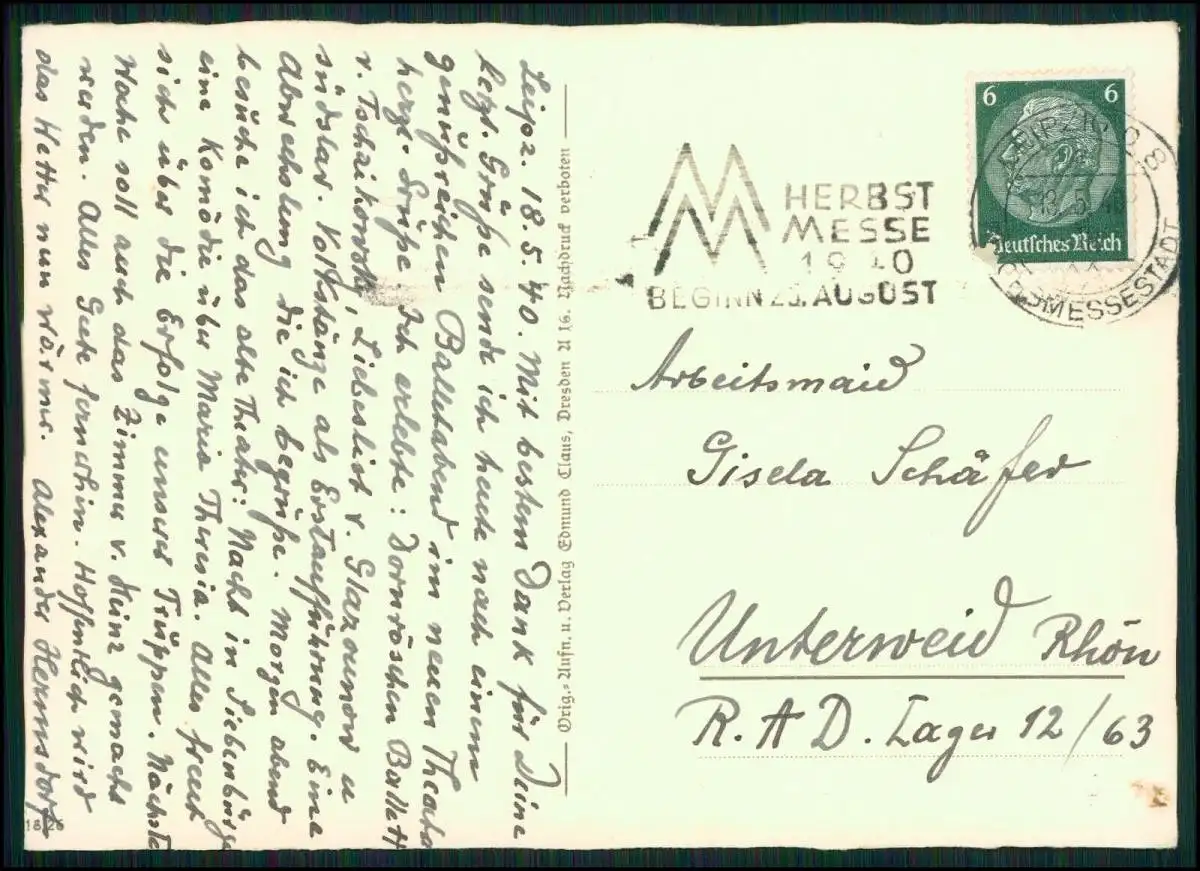 Leipz. 18.5.40. Mit bestem Dank für Deine
herzl. Grüße sende ich heute nach einem
genußreichen Ballettabend im neuen Theater
herzl. Grüße. Ich erlebte: Dornröschen Ballett
v. Tschaikowsky, Liebeslist v. Glazounow u
südslav. Volkstänze als Erstaufführung. Eine
Abwechslung die ich begrüße. Morgen abend
besuche ich das alte Theater: Nacht in Siebenbürgen
eine Komödie über Maria Theresia. Alles freut
sich über die Erfolge unserer Truppen. Nächste
Woche soll auch das Zimmer v. Heinz gemacht
werden. Alles Gute fernerhin. Hoffentlich wird
das Wetter nun wärmer. Alexander Hermsdorf
Orig.-Aufn. u. Verlag Edmund Claus, Dresden A 16. Nachdruck verboten
HERBST
MESSE
1940
BEGINN 25. AUGUST
6 6
Deutsches Reich
LEIPZIG O 8
REICHSMESSESTADT
Arbeitsmaid
Gisela Schäfer
Unterweid Rhön
R.A.D. Lager 12/63